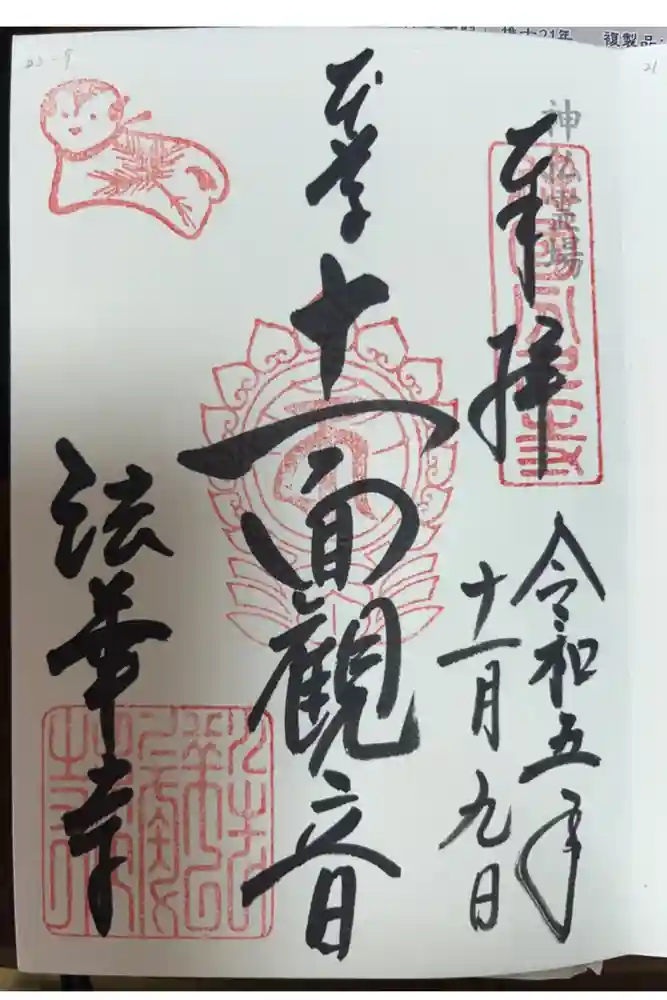 複製品:
21
神仏霊場
奉拝
令和五年
十一月九日
本尊
十一面觀音
法華寺